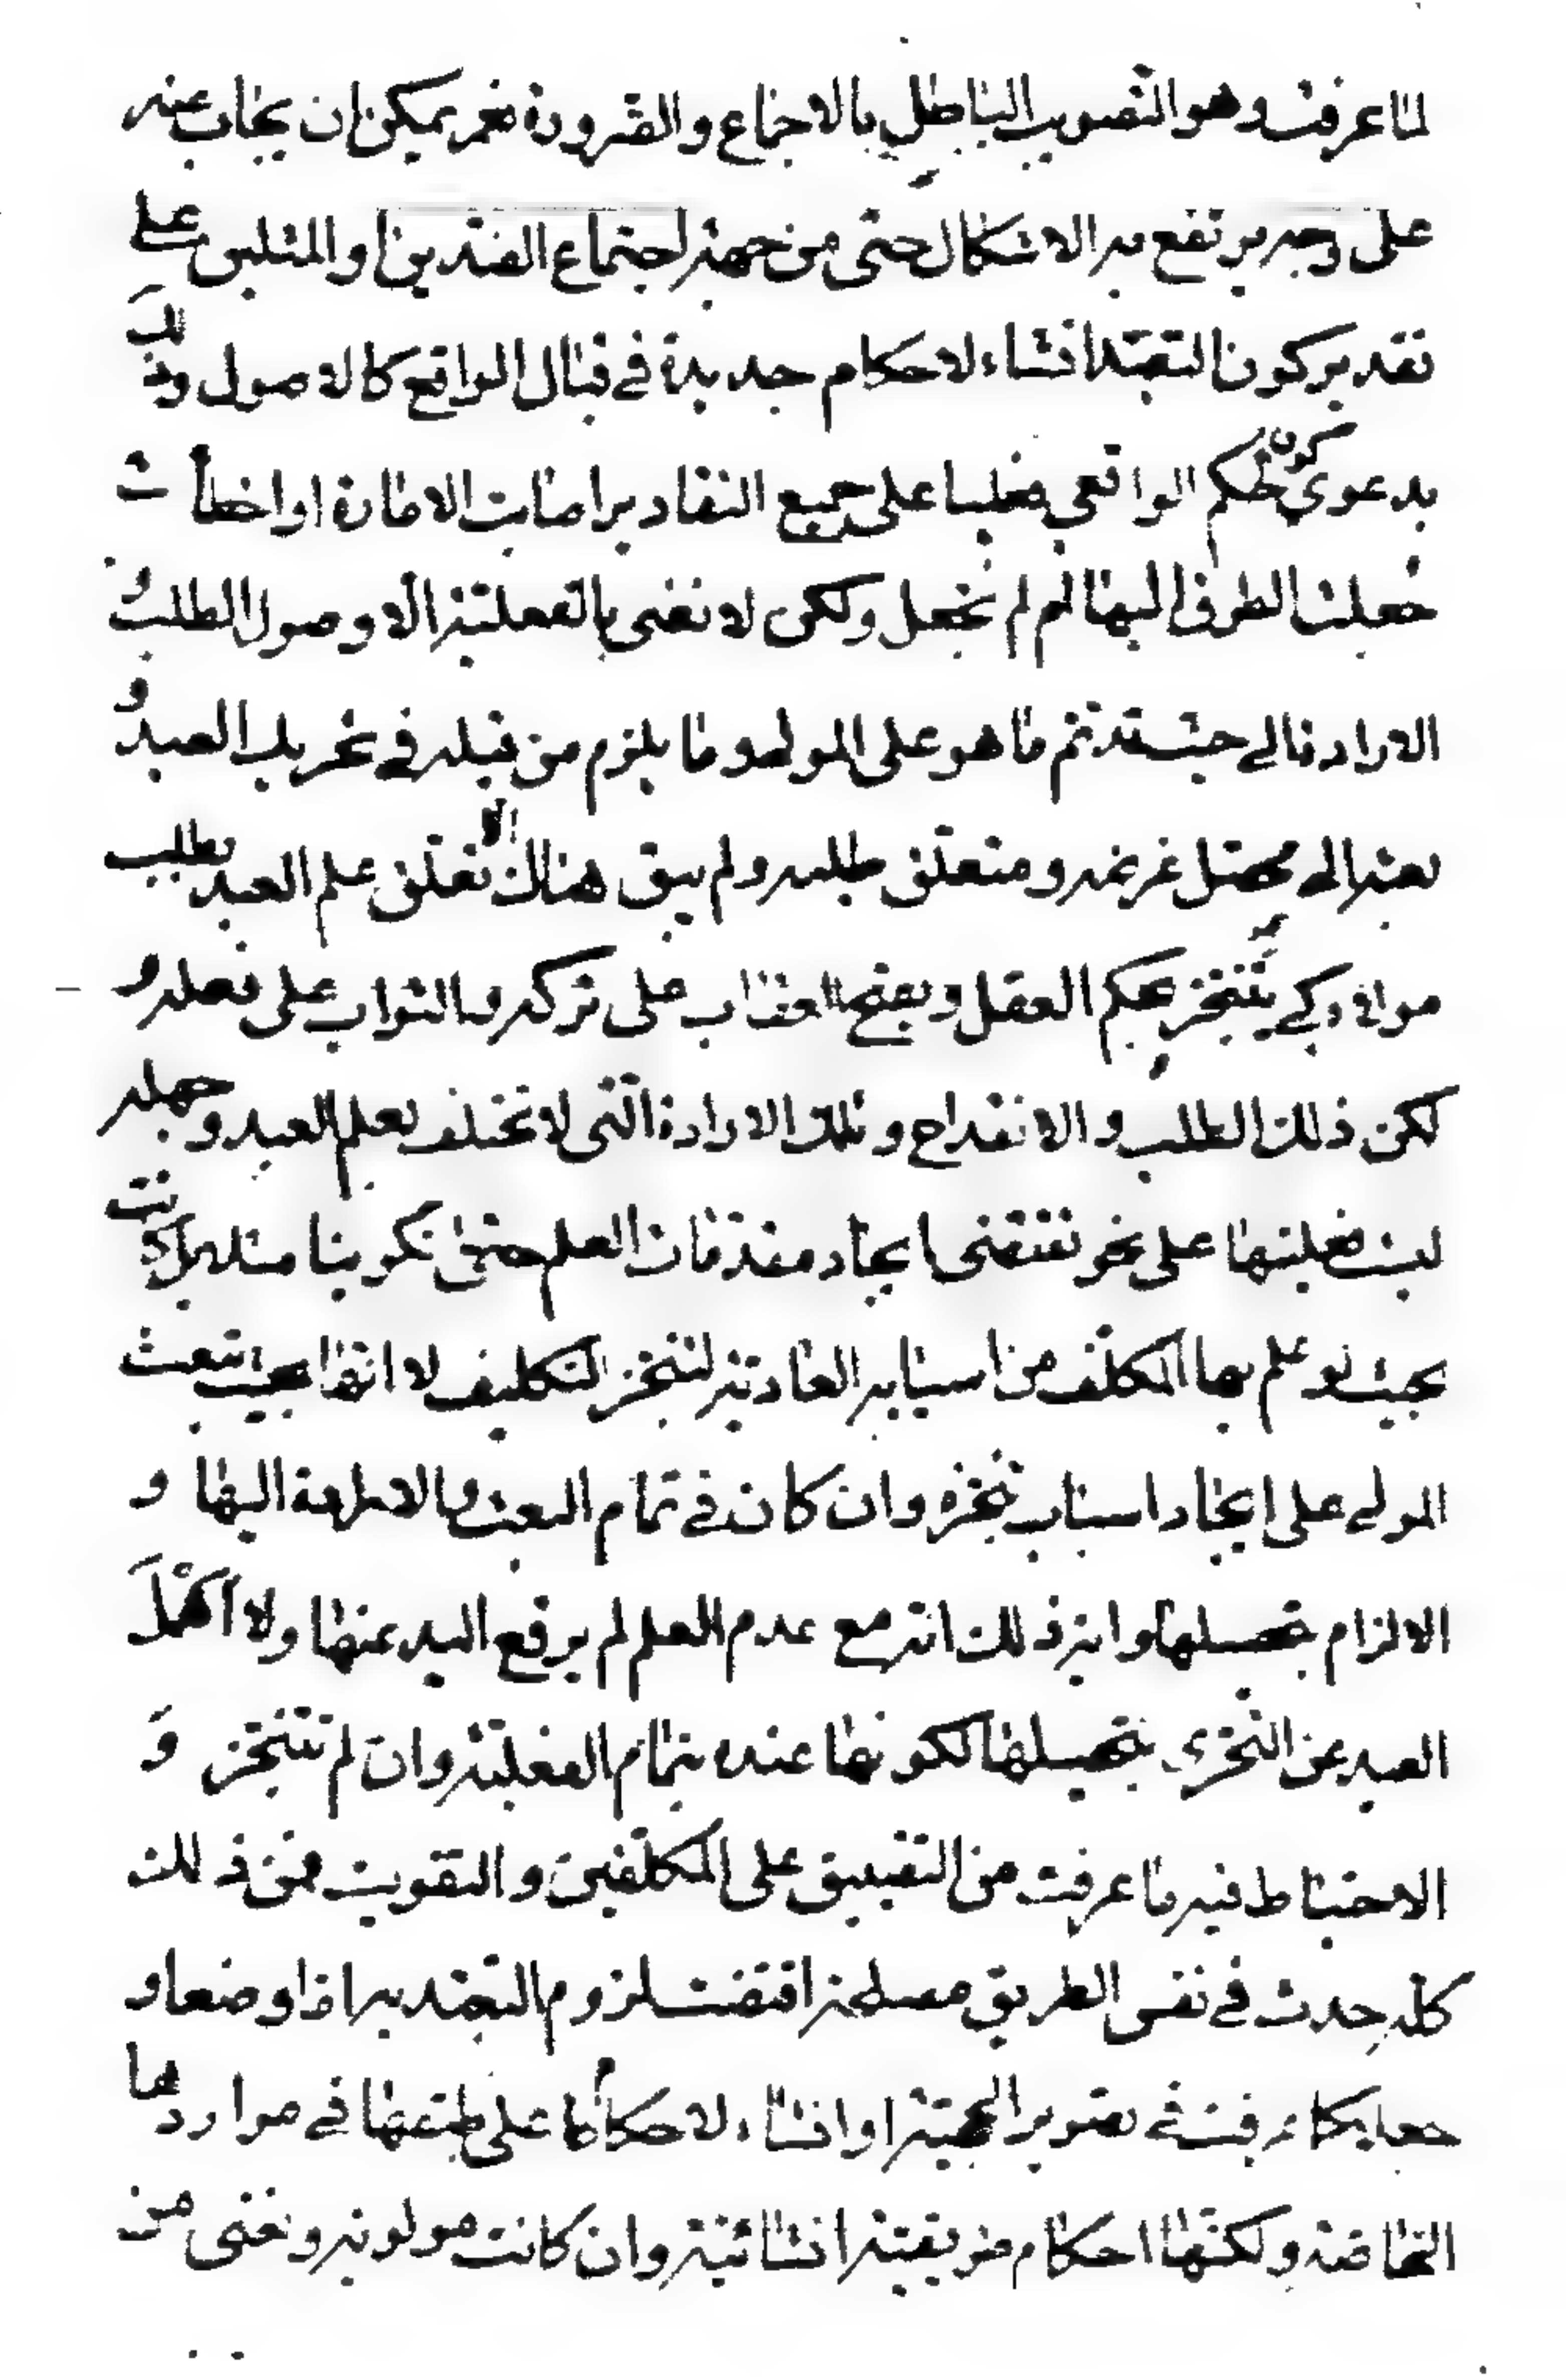 لما عرفت وهو التصويب الباطل بالاجماع والضرورة نعم يمكن ان يجاب عنه
على وجه يرتفع به الاشكال حتى من جهة اجتماع الضدين او المثلين على
تقدير كون التعبد انشاء لاحكام جديدة في قبال الواقع كالاصول وذلك
بدعوى كون الحكم الواقعي فعليا على جميع التقادير اصابت الامارة او اخطأت
جعلت الطرق اليها ام لم تجعل ولكن لا نعنى بالفعلية الا وصول الطلب و
الارادة الى حيث قد تم ما هو على المولى وما يلزم من قبله في تحريك العبد و
بعثه الى محصل غرضه ومتعلق طلبه ولم يبق هناك الا تعلق علم العبد بطلب
مولاه كي يتنجز بحكم العقل ويصح العقاب على تركه والثواب على فعله و
لكن ذلك الطلب والانقداح وتلك الارادة التى لا تختلف بعلم العبد وجهله
ليست فعليتها على نحو تقتضى ايجاد مقدمات العلم حتى تكوينا مثلا بل كانت
بحيث لو علم بها المكلف من اسبابه العادية لتنجز التكليف لا انها بحيث تبعث
المولى على ايجاد اسباب تنجزه وان كان في تمام البعث والارادة اليها و
الالزام بتحصيلها واية ذلك انه مع عدم العلم لم يرفع اليد عنها ولا اهمل
العبد عن التحرى بتحصيلها لكونها عنده بتمام الفعلية وان لم تتنجز و
الاحتياط فيه ما عرفت من التضييق على المكلفين والتفويت فمن ذلك
كله حدث في نفس الطريق مصلحة اقتضت لزوم التعبد به اما وضعا و
جعلا كما عرفت في تصوير الحجية او انشاء لاحكام على طبقها في مواردها
الخاصة ولكنها احكام طريقية انشائية وان كانت مولوية ونعنى من